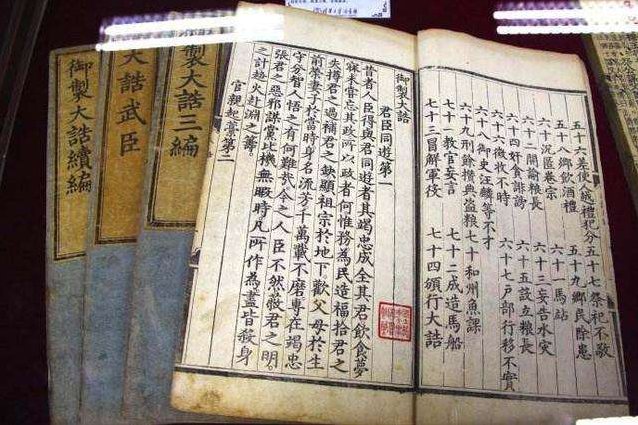 五十六差使人越禮犯分 五十七祭祀不敬
五十八鄉飲酒禮 五十九鄉民除患
六十沉匿卷宗 六十一馬站
六十二閒諭糧長 六十三妄告水災
六十四奸貪誹謗 六十五設立糧長
六十六徵收不時 六十七戶部行移不實
六十八御史汪麟等不才
六十九刑餘攢典盜糧 七十和州魚課
七十一教官妄言 七十二成造馬船
七十三冒解軍役 七十四頒行大誥
御製大誥
君臣同遊第一
昔者人臣得與君同遊者其竭忠成全其君飲食夢
寐未嘗忘其政所以政者何惟務為民造福拾君之
失撙君之過補君之缺顯祖宗於地下歡父母於生
前榮妻子於當時身名流芳千萬載不磨專在竭忠
守分智人悟之有何難哉今之人臣不然蔽君之明
張君之惡邪謀黨比機無暇時凡所作為盡皆殺身
之計趨火赴淵之籌
官親起藁第二
御製大誥三編
大誥武臣
御製大誥續編